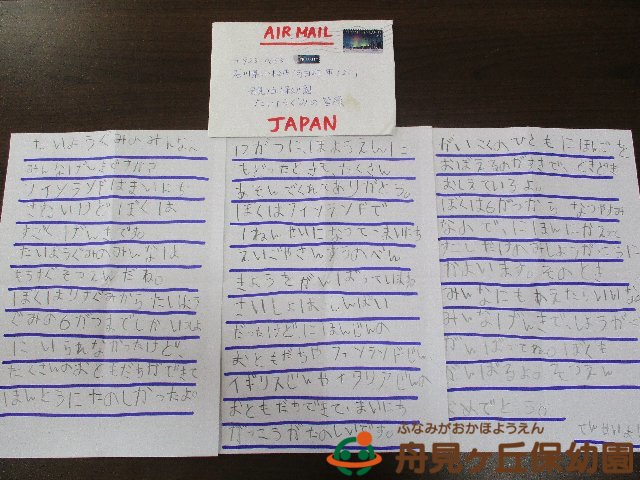 AIR MAIL
JAPAN
たいようぐみのみんなへ
みんなげんきですか？
フィンランドはまいにち
さむいけど ぼくは
すごくげんきでね
たいようぐみのみんなは
もうすぐそつえんだね。
ぼくはりすぐみからたいよう
ぐみの6がつまでしかいっしょ
にいられなかったけど、
たくさんのおともだちができて
ほんとうにたのしかったよ。
12がつに、ほようえんに
もどったときも、たくさん
あそんでくれてありがとう。
ぼくはフィンランドで
1ねんせいになって、まいにち
えいごやさんすうのべん
きょうをがんばっているよ。
さいしょは、しんぱい
だったけどにほんじんの
おともだちや フィンランドじん
イギリスじんやイタリアじんの
おともだちができて、まいにち
がっこうがたのしいです。
がいこくのひともにほんごを
おぼえるのがすきで、ときどき
おしえているよ。
ぼくは6がつから なつやすみ
なので、にほんにかえって
すこしだけみしょうがっこうに
かよいます。そのとき
みんなにもあえたらいいな。
みんなげんきで、しょうがっこう
がんばってね。ぼくも
がんばるよ。そつえん
おめでとう。
ふなみがおかほようえん
舟見ヶ丘保幼園